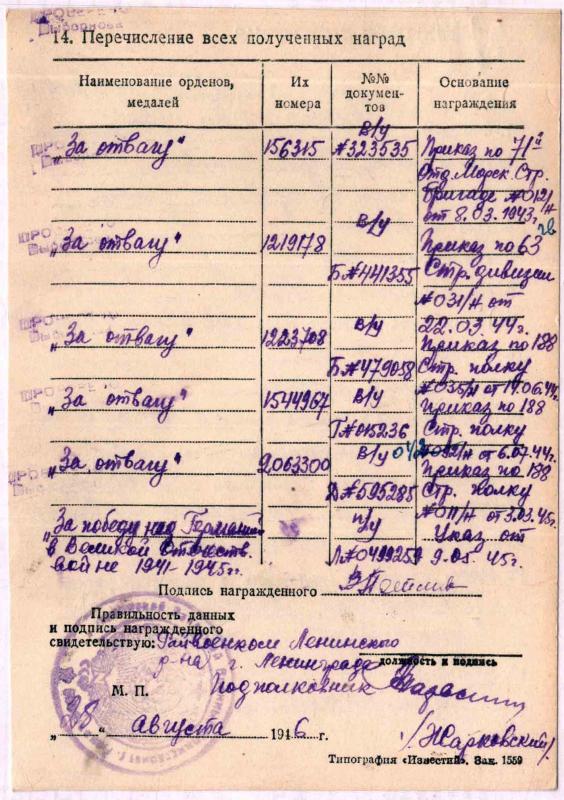 14. Перечисление всех полученных наград
Наименование орденов, медалей
Их номера
№№ докумен-тов
Основание награждения
в/у
„За отвагу" 156315 №323535 Приказ по 71й
Отд. Морск. Стр.
Бригаде №012/н
в/у от 8.03.1943г.
„За отвагу" 1219178 Приказ по 63 гв.
Б№441355 Стр. дивизии
№031/н от
в/у 22.03.44г.
„За отвагу" 1223708 Приказ по 188
Б№479058 Стр. полку
№035/н от 14.06.44г.
„За отвагу" 1544967 в/у Приказ по 188
Г№015236 Стр. полку
в/у 042/н от 6.07.44г.
„За отвагу" 2063300 Приказ по 188
Д№595285 Стр. полку
№011/н от 3.03.45г.
„За победу над Германией п/у Указ от
в Великой Отечеств. Л№0499259 9.05.45г.
войне 1941-1945гг.
Подпись награжденного
Правильность данных
и подпись награжденного
свидетельствую: Райвоенком Ленинского
р-на г. Ленинграда
должность и подпись
М. П. Подполковник
„28" августа 1946 г. /Жарковский/
Типография «Известий». Зак. 1559